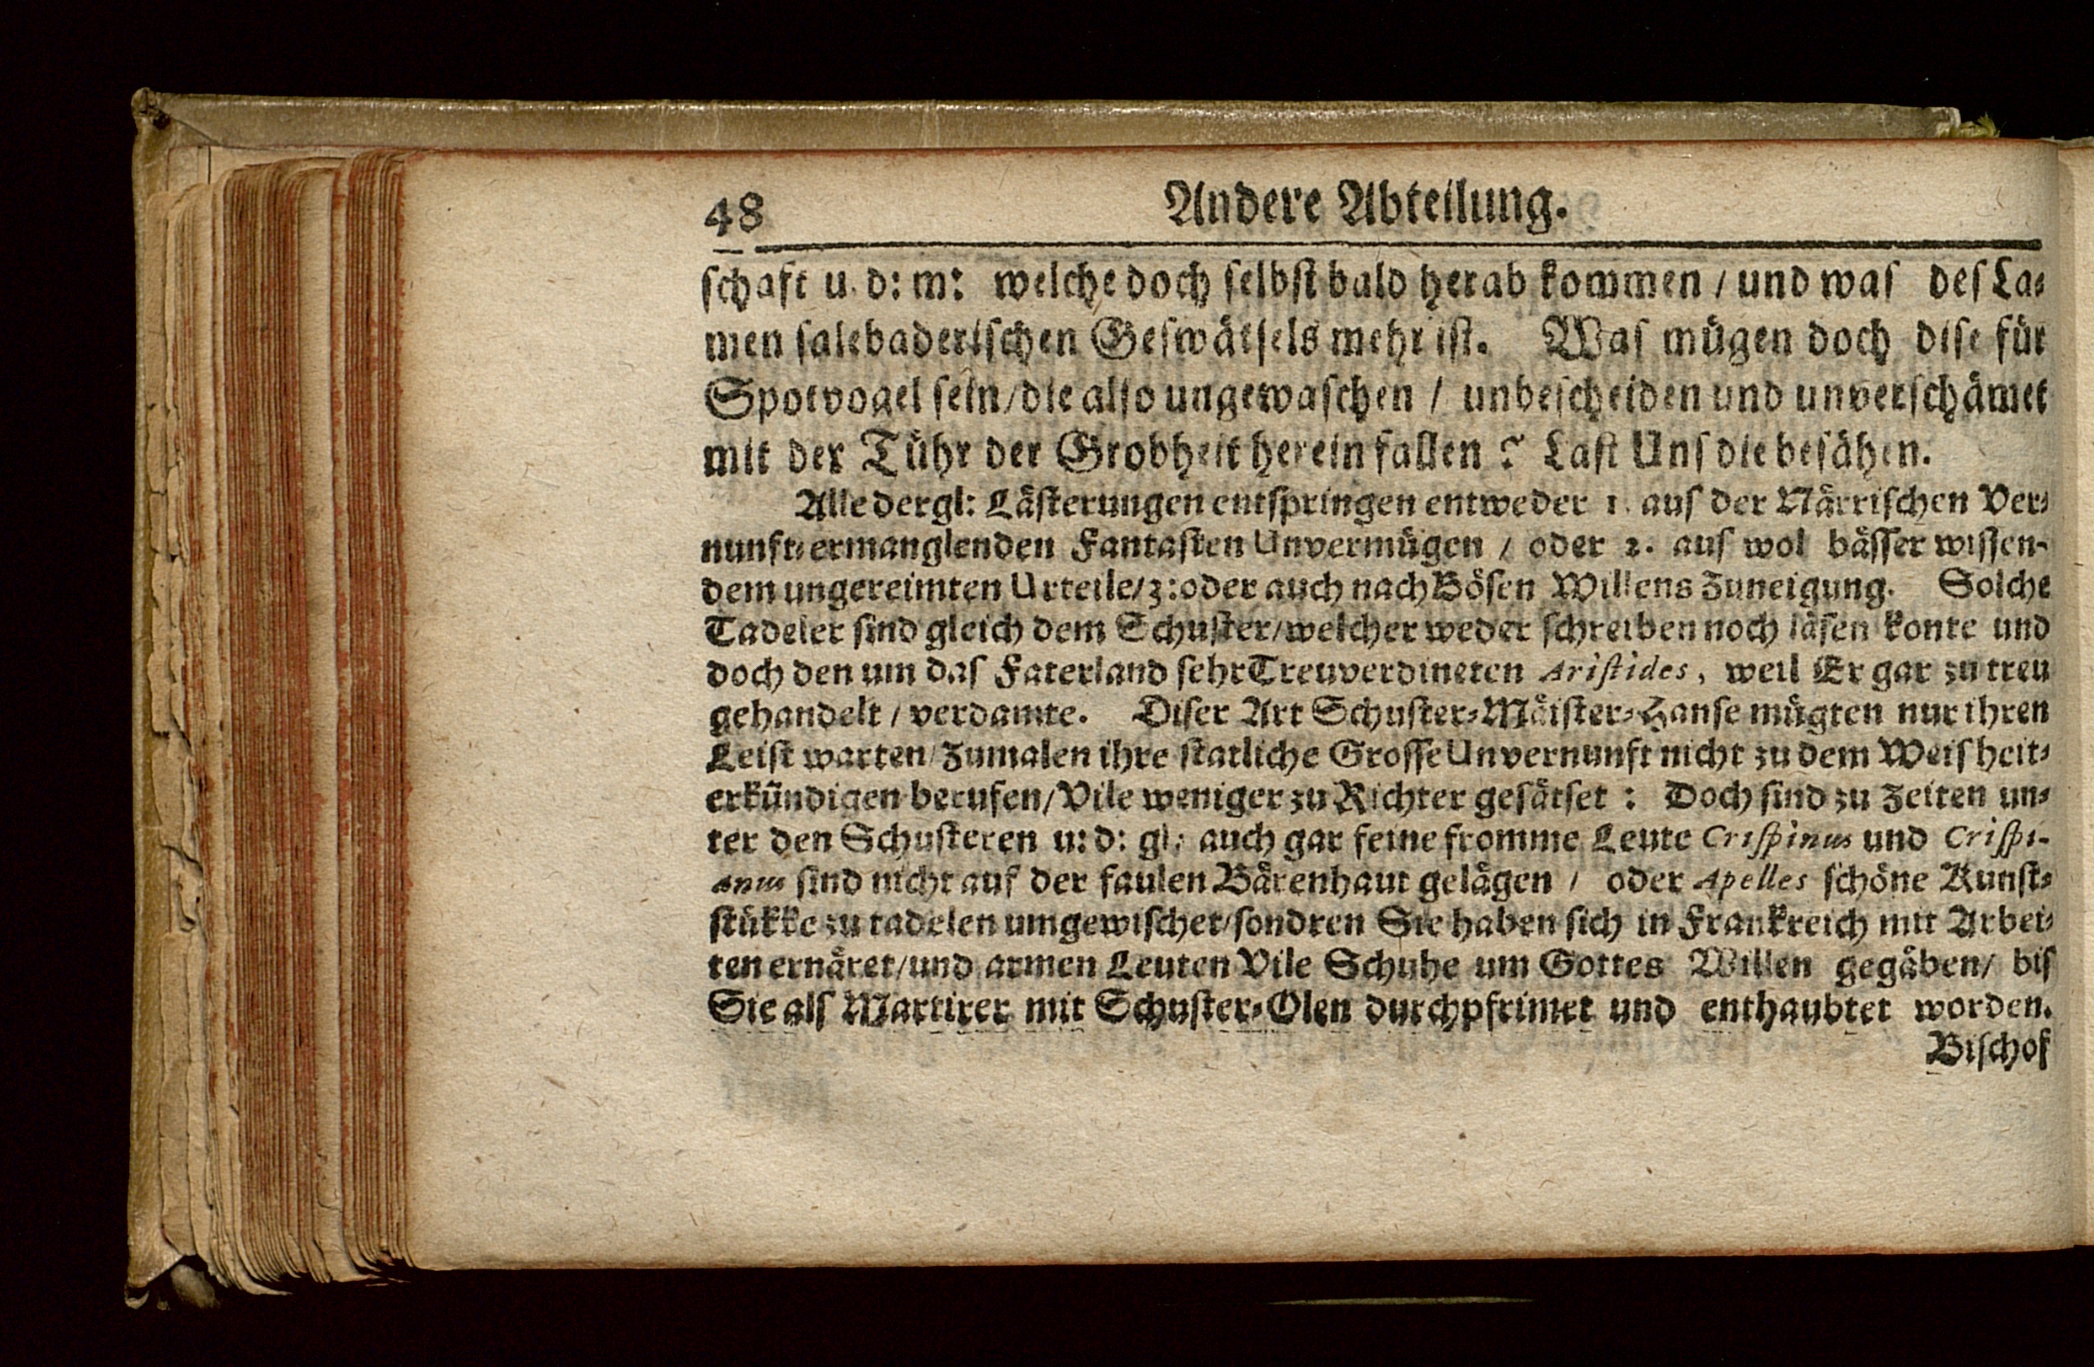 48 Andere Abteilung.
ſchaft u. d: m: welche doch ſelbſt bald herab kommen / und was deſ La-
men ſalebaderiſchen Geſwätſels mehr iſt. Waſ mügen doch diſe für
Spotvogel ſein / die alſo ungewaſchen / unbeſcheiden und unverſchämet
mit der Tühr der Grobheit herein fallen? Laſt Unſ die beſähen.
Alle dergl: Läſterungen entſpringen entweder 1. auſ der Närriſchen Ver-
nunft-ermanglenden Fantaſten Unvermügen / oder 2. auſ wol bäſſer wiſſen-
dem ungereimten Urteile / 3: oder auch nach Böſen Willens Zuneigung. Solche
Tadeler ſind gleich dem Schuſter / welcher weder ſchreiben noch läſen konte und
doch den um daſ Faterland ſehr Treuverdineten Ariſtides, weil Er gar zu treu
gehandelt / verdamte. Diſer Art Schuſter-Mäiſter-Hanſe mügten nur ihren
Leiſt warten / Zumalen ihre ſtatliche Groſſe Unvernunft nicht zu dem Weiſheit-
erkündigen berufen / Vile weniger zu Richter geſätſet: Doch ſind zu Zeiten un-
ter den Schuſteren u: d: gl: auch gar feine fromme Leute Criſpinus und Criſpi-
anus ſind nicht auf der faulen Bärenhaut gelägen / oder Apelles ſchöne Kunſt-
ſtükke zu tadelen umgewiſchet / ſondren Sie haben ſich in Frankreich mit Arbei-
ten ernäret / und armen Leuten Vile Schuhe um Gottes Willen gegäben / biſ
Sie alſ Martirer mit Schuſter-Olen durchpfrimet und enthaubtet worden.
Biſchof